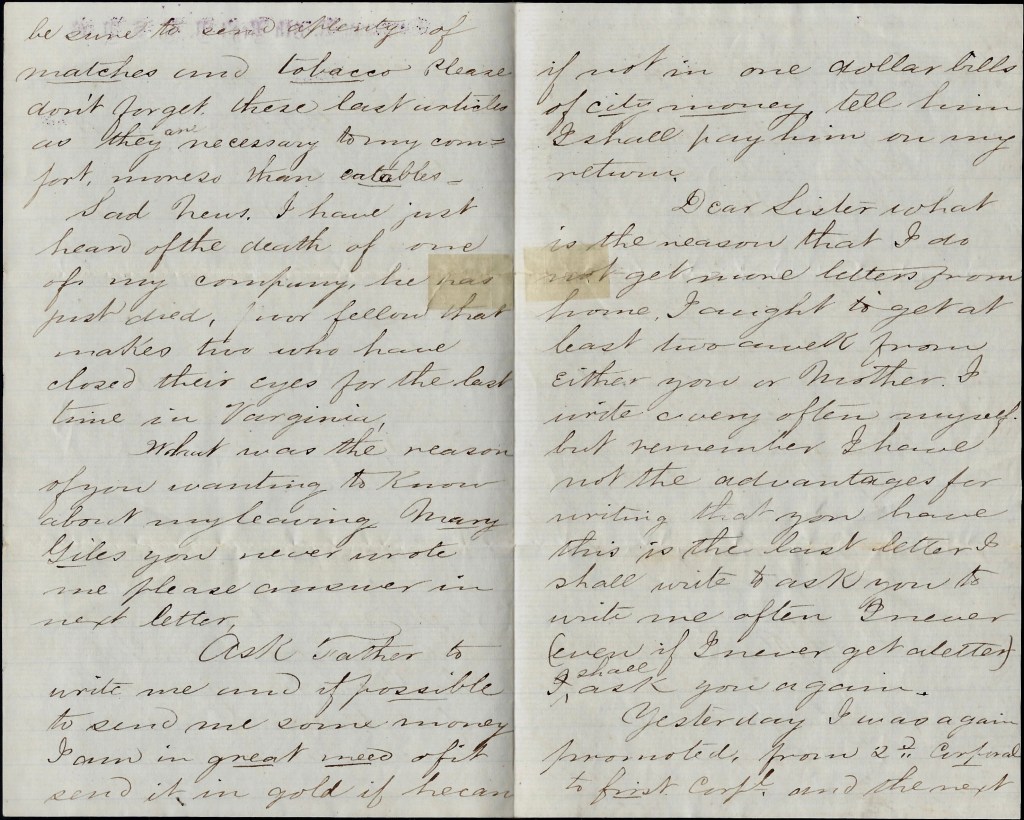 be sure to send aplenty of
matches and tobacco Please
don't forget. these last articles
as they are necessary to my com=
fort, moreso than eatables—
Sad News. I have just
heard of the death of one
of my company, he has
just died, poor fellow that
makes two who have
closed their eyes for the last
time in Varginia,
What was the reason
of you wanting to know
about my leaving Mary
Giles you never wrote
me please answer in
next letter,
Ask Father to
write me and if possible
to send me some money
I am in great need of it
send it in gold if he can
if not in one dollar bills
of city money, tell him
I shall pay him on my
return.
Dear Sister what
is the reason that I do
not get more letters from
home, I aught to get at
least two a week from
either you or Mother. I
write every often myself.
but remember I have
not the advantages for
writing that you have
this is the last letter I
shall write to ask you to
write me often I never
(even if I never get a letter)
I shall ask you again.
Yesterday I was again
promoted, from 2d Corporal
to frist Corpl. and the next